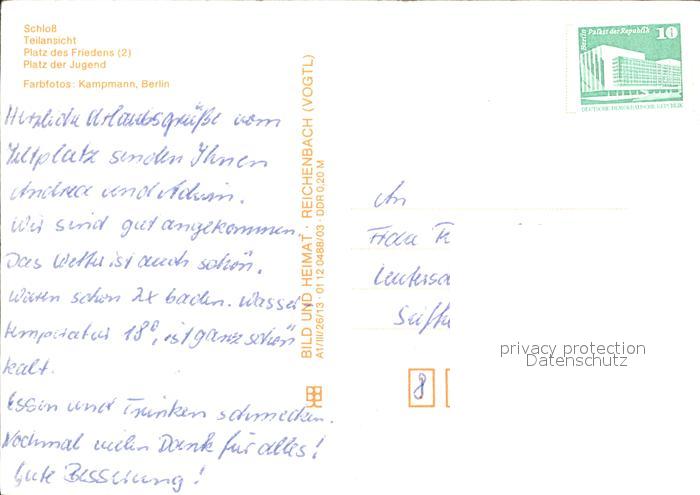 Schloß
Teilansicht
Platz des Friedens (2)
Platz der Jugend
Farbfotos: Kampmann, Berlin
Herzliche Urlaubsgrüße vom
Zeltplatz senden Ihnen
Andrea und Armin.
Wir sind gut angekommen.
Das Wetter ist auch schön,
waren schon 2x baden. Wasser-
temperatur 18°, ist ganz schön
kalt.
Essen und Trinken schmecken.
Nochmal vielen Dank für alles!
Gute Besserung!
BILD UND HEIMAT · REICHENBACH (VOGTL)
A1/III/26/13 · 01 12 0488/03 · DDR 0,20 M
Berlin Palast der Republik
10
DEUTSCHE DEMOKRATISCHE REPUBLIK
An
Frau
8
privacy protection
Datenschutz